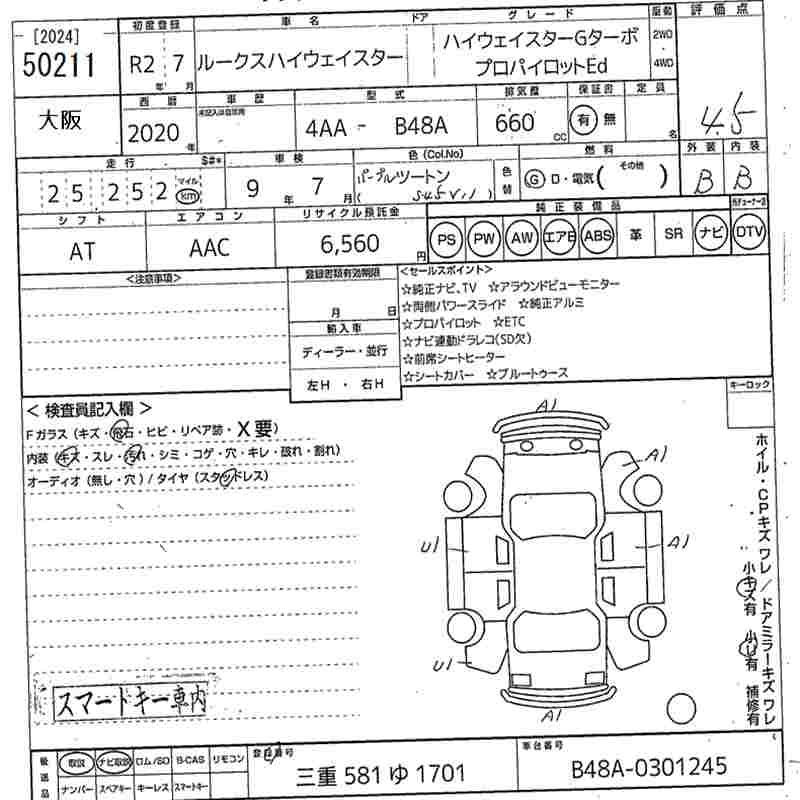 [2024]
50211
初度登録
R2 年 7 月
車名
ドア
グレード
ルークスハイウェイスター
ハイウェイスターGターボ
プロパイロットEd
駆動
2WD
・
4WD
評価点
4.5
大阪
西暦
2020 年
車歴
未記入は自家用
型式
4AA - B48A
排気量
660 cc
保証書
有 無
定員
名
外装 内装
B B
走行 $#*
25 252 マイル km
車検
9 年 7 月
色 (Col.No)
パープルツートン
色替
燃料
G D・電気( その他 )
シフト
AT
エアコン
AAC
リサイクル預託金
6,560 円
純正装備品
PS PW AW エアB ABS 革 SR ナビ DTV
<注意事項>
登録書類有効期限
月 日
輸入車
ディーラー・並行
左H ・ 右H
<セールスポイント>
☆純正ナビ、TV ☆アラウンドビューモニター
☆両側パワースライド ☆純正アルミ
☆プロパイロット ☆ETC
☆ナビ連動ドラレコ(SD欠)
☆前席シートヒーター
☆シートカバー ☆ブルートゥース
キーロック
< 検査員記入欄 >
Fガラス (キズ・飛石・ヒビ・リペア跡・X要)
内装 (キズ・スレ・汚れ・シミ・コゲ・穴・キレ・破れ・割れ)
オーディオ (無し・穴) / タイヤ (スタッドレス)
A1
A1
U1
A1
U1
A1
ホイル・CPキズ ワレ / ドアミラーキズ ワレ
小キズ有 小U有 補修有
スマートキー車内
後送品
取説 ナビ取説 ロム/SD B-CAS リモコン
ナンバー スペアキー キーレス スマートキー
登録番号
三重 581 ゆ 1701
車台番号
B48A-0301245